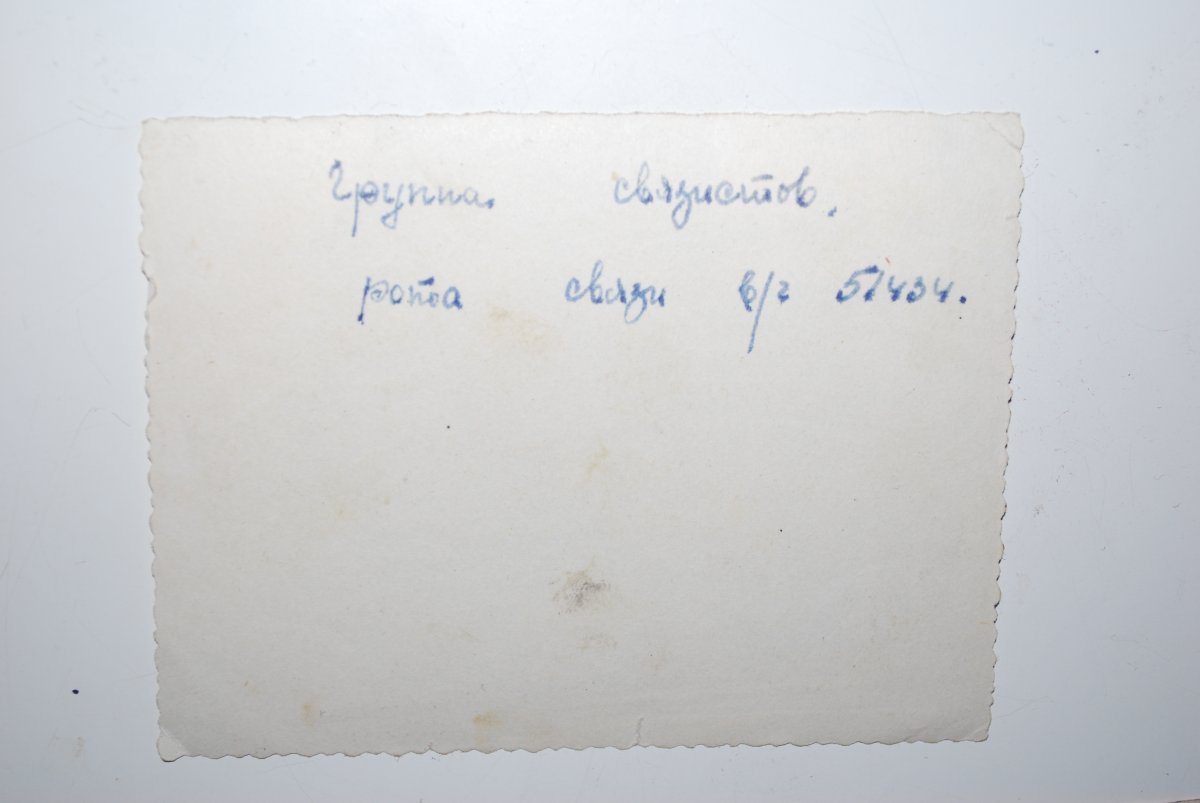 Группа. связистов.
рота связи в/ч 51434.